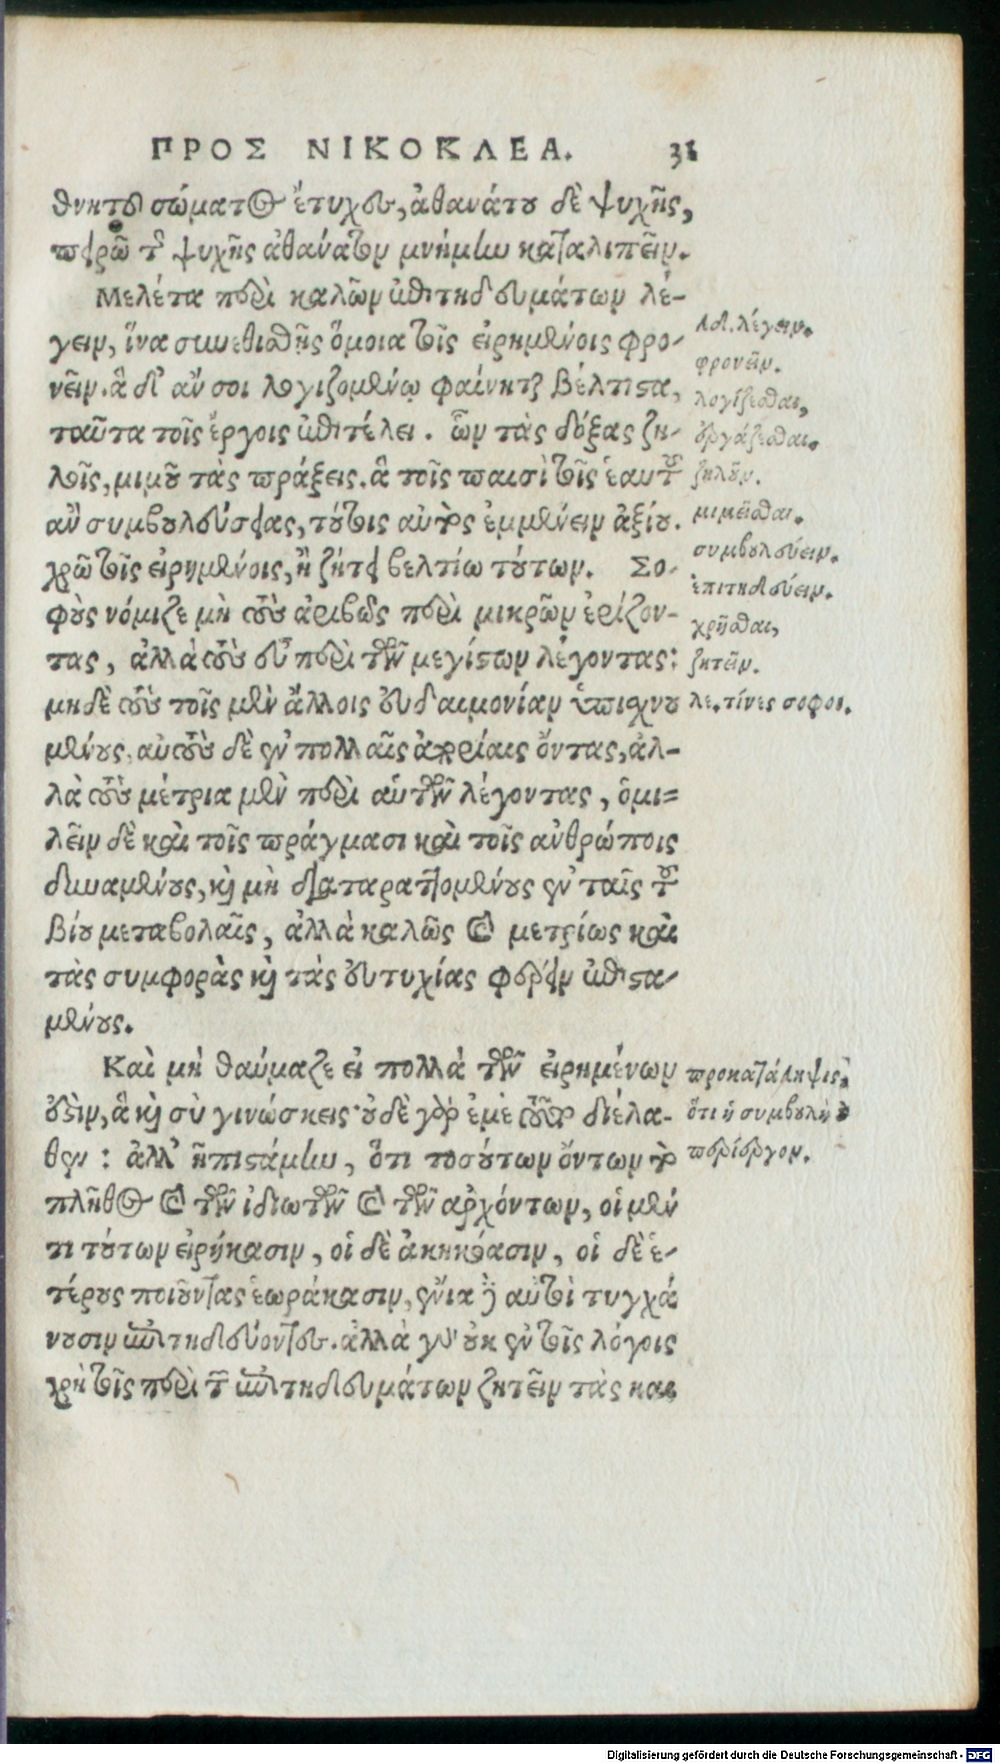 ΠΡΟΣ ΝΙΚΟΚΛΕΑ. 31
θνητοῦ σώματος ἔτυχες, ἀθανάτου δὲ ψυχῆς,
πειρῶ τῆς ψυχῆς ἀθάνατον μνήμην καταλιπεῖν.
Μελέτα περὶ καλῶν ἐπιτηδευμάτων λέ-
γειν, ἵνα συνεθισθῇς ὅμοια τοῖς εἰρημένοις φρο-
νεῖν. ἃ δ' ἄν σοι λογιζομένῳ φαίνηται βέλτιστα,
ταῦτα τοῖς ἔργοις ἐπιτέλει. ὧν τὰς δόξας ζη-
λοῖς, μιμοῦ τὰς πράξεις. ἃ τοῖς παισὶ τοῖς ἑαυτοῦ
ἂν συμβουλεύσειας, τούτοις αὐτὸς ἐμμένειν ἀξίου.
χρῶ τοῖς εἰρημένοις, ἢ ζήτει βελτίω τούτων. Σο-
φοὺς νόμιζε μὴ τοὺς ἀκριβῶς περὶ μικρῶν ἐρίζον-
τας, ἀλλὰ τοὺς εὖ περὶ τῶν μεγίστων λέγοντας:
μηδὲ τοὺς τοῖς μὲν ἄλλοις εὐδαιμονίαν ὑπισχνου
μένους, αὐτοὺς δὲ ἐν πολλαῖς ἀπορίαις ὄντας, ἀλ-
λὰ τοὺς μέτρια μὲν περὶ αὑτῶν λέγοντας, ὁμι-
λεῖν δὲ καὶ τοῖς πράγμασι καὶ τοῖς ἀνθρώποις
δυναμένους, καὶ μὴ διαταραττομένους ἐν ταῖς τοῦ
βίου μεταβολαῖς, ἀλλὰ καλῶς καὶ μετρίως καὶ
τὰς συμφορὰς καὶ τὰς εὐτυχίας φέρειν ἐπιστα-
μένους.
Καὶ μὴ θαύμαζε εἰ πολλὰ τῶν εἰρημένων
ἐστὶν, ἃ καὶ σὺ γινώσκεις· οὐδὲ γὰρ ἐμὲ τοῦτο διέλα-
θεν: ἀλλ' ἠπιστάμην, ὅτι τοσούτων ὄντων τὸ
πλῆθος καὶ τῶν ἰδιωτῶν καὶ τῶν ἀρχόντων, οἱ μέν
τι τούτων εἰρήκασιν, οἱ δὲ ἀκηκόασιν, οἱ δὲ ἑ-
τέρους ποιοῦντας ἑωράκασιν, ἔνια δὲ αὐτοὶ τυγχά
νουσιν ἐπιτηδεύοντες. ἀλλὰ γὰρ οὐκ ἐν τοῖς λόγοις
χρὴ τοῖς περὶ τῶν ἐπιτηδευμάτων ζητεῖν τὰς και
λδ. λέγειν.
φρονεῖν.
λογίζεσθαι,
ἐργάζεσθαι.
ζηλοῦν.
μιμεῖσθαι.
συμβουλεύειν.
ἐπιτηδεύειν.
χρῆσθαι,
ζητεῖν.
λε. τίνες σοφοί.
προκατάληψις,
ὅτι ἡ συμβουλὴ οὐ
περίεργον.
Digitalisierung gefördert durch die Deutsche Forschungsgemeinschaft - DFG